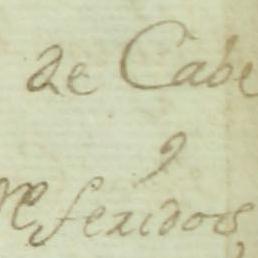 de Cabe
referidos